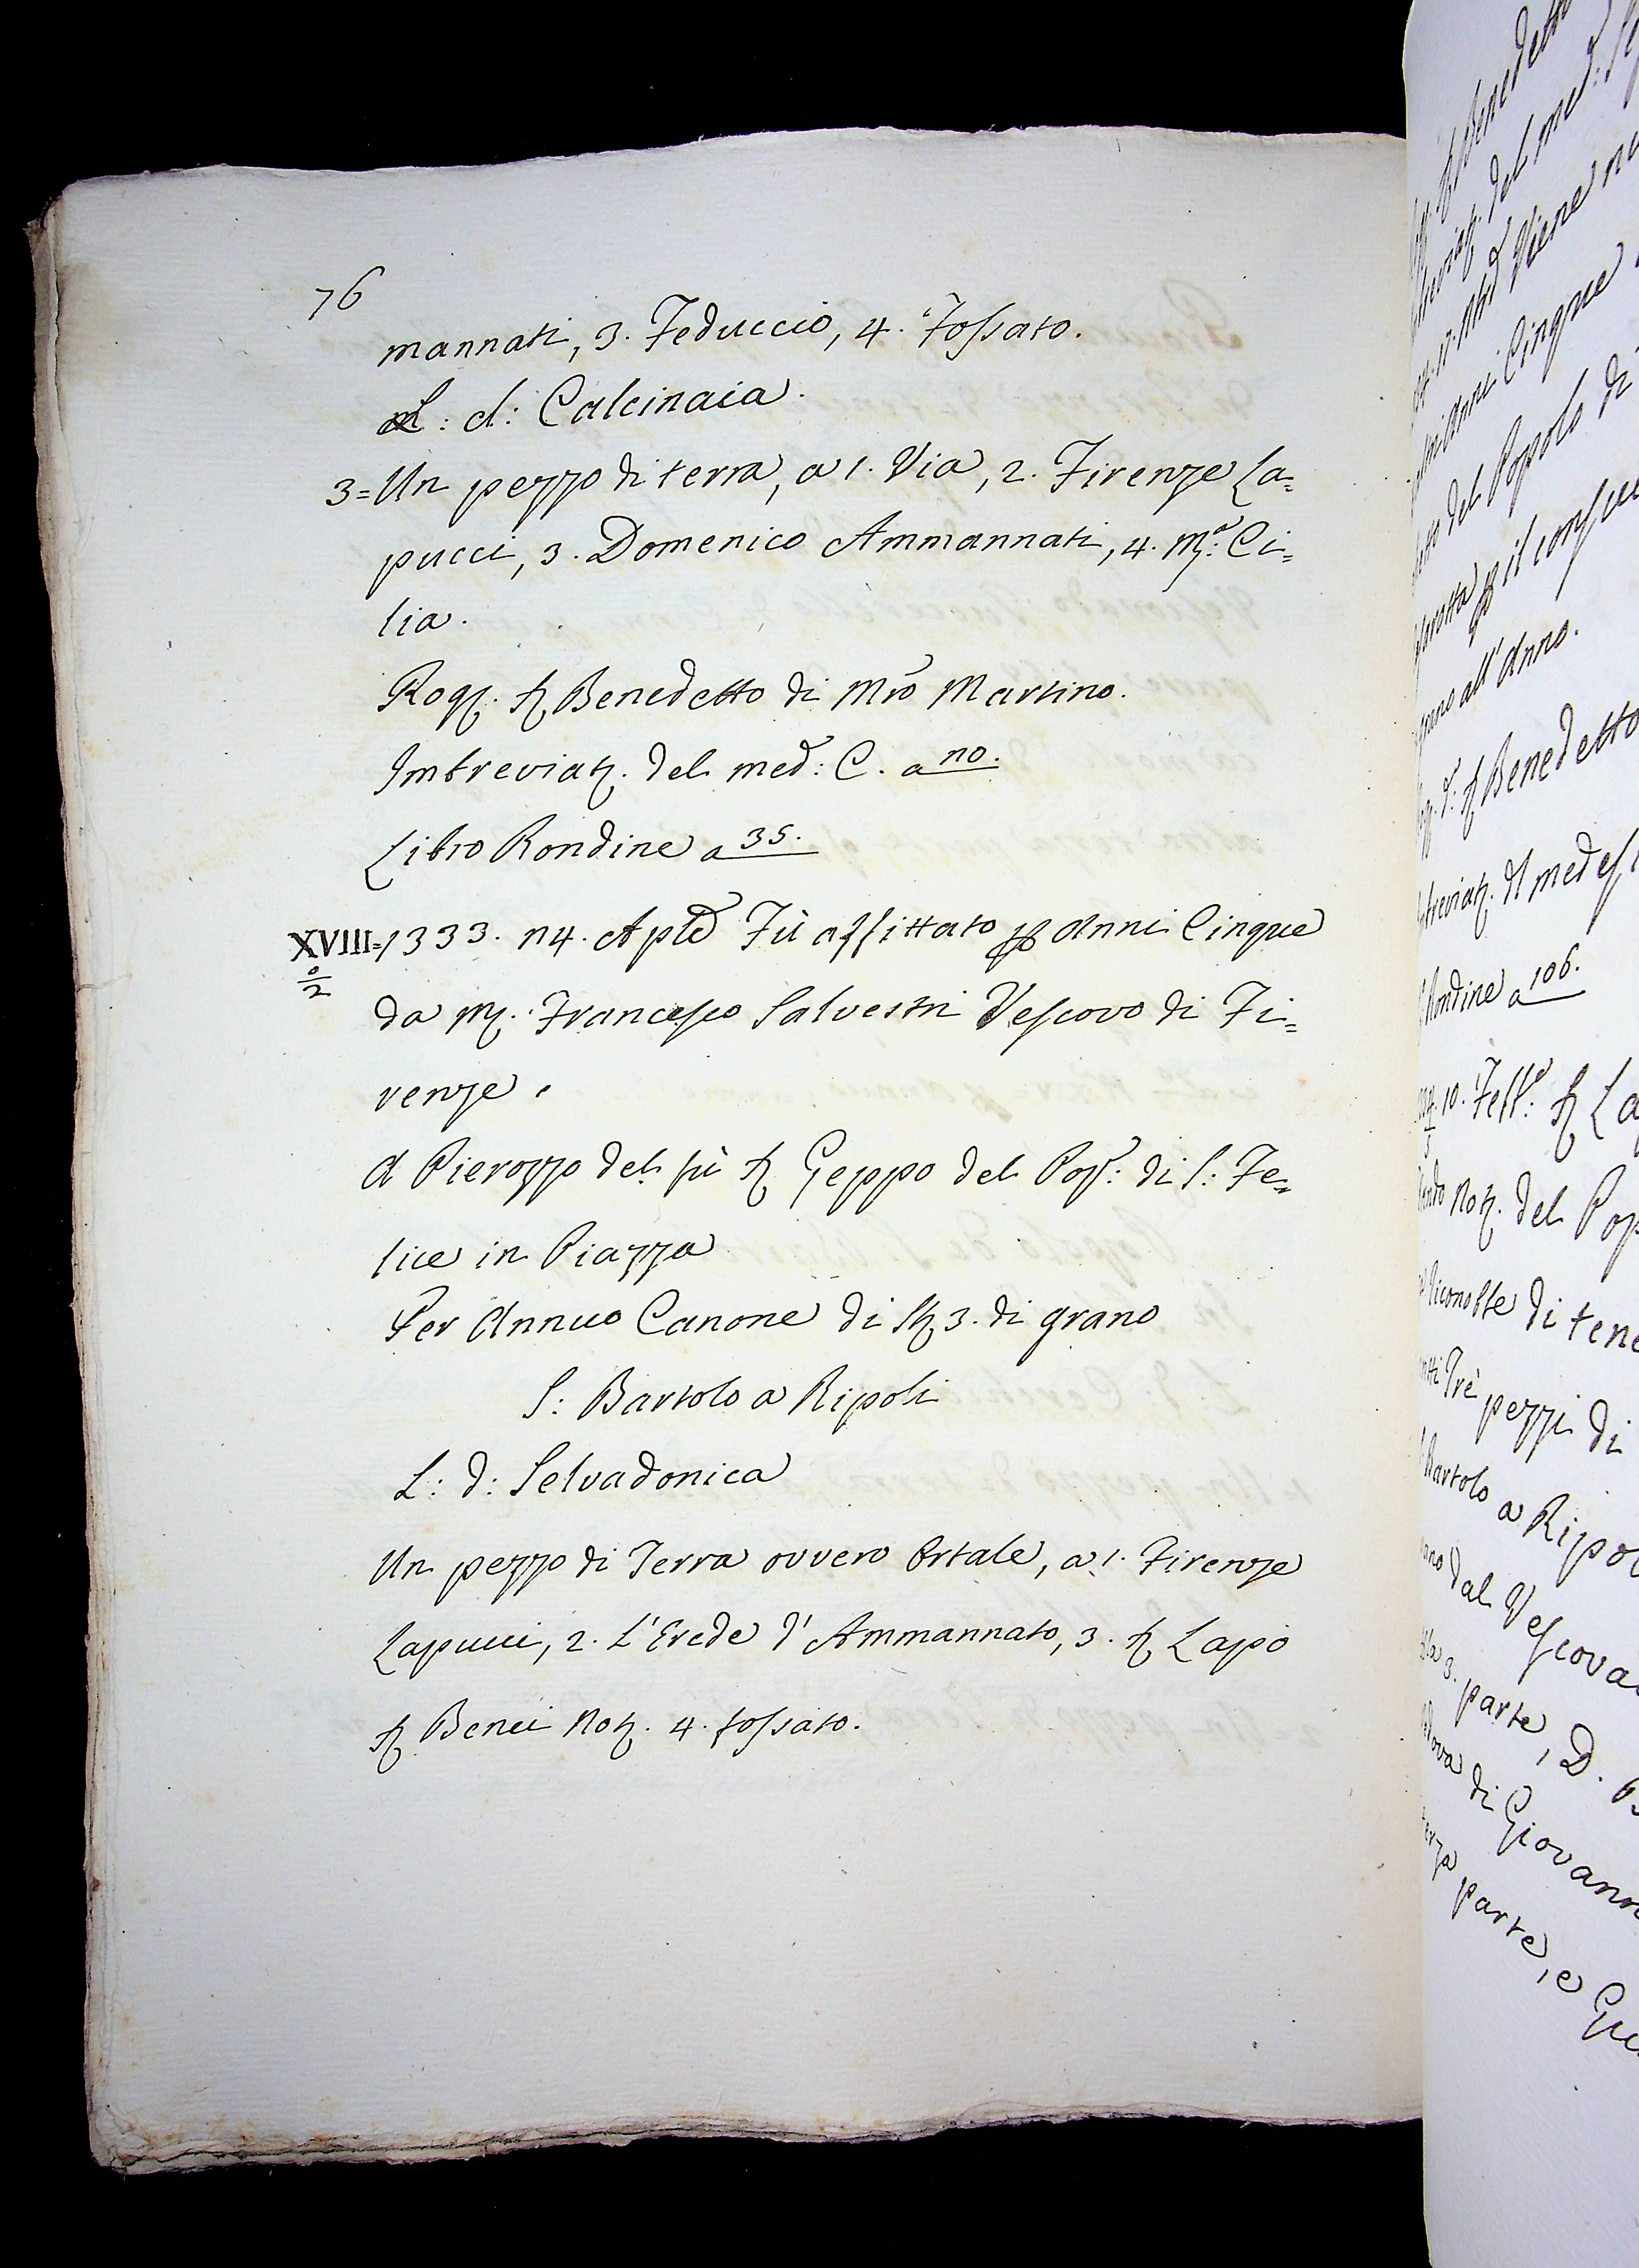 76
mannati, 3. Feduccio, 4. Fossato.
L: d: Calcinaia.
3= Un pezzo di terra, a 1. Via, 2. Firenze La=
pucci, 3. Domenico Ammannati, 4. Mª: Ci=
lia.
Rogẓ. Benedetto di Mrõ Martino.
Imbreviaz. del med: C. a no.
Libro Rondine a 35.
XVIII= 1333. 14. Aple Fù affittato p Anni Cinque
2
da M. Francesco Salvestri Vescovo di Fi=
renze.
A Pierozzo del fù Geppo del Pop: di S: Fe=
lice in Piazza
Per Annuo Canone di 3. di grano
S: Bartolo a Ripoli
L: d: Selvadonica
Un pezzo di Terra ovvero Ortale, a 1. Firenze
Lapucci, 2. L'Erede d'Ammannato, 3. Lapo
Benci Not. 4. fossato.
Benedetto
del med:
Viene
Anni Cinque
del Popolo di
p il
all'Anno.
Benedetto
Rondine a 106.
10. Febb:
Not. del Pop
di tene
Trè pezzi di
Bartolo a Ripol
dal Vescova
3. parte, D.
di Giovann
parte, e